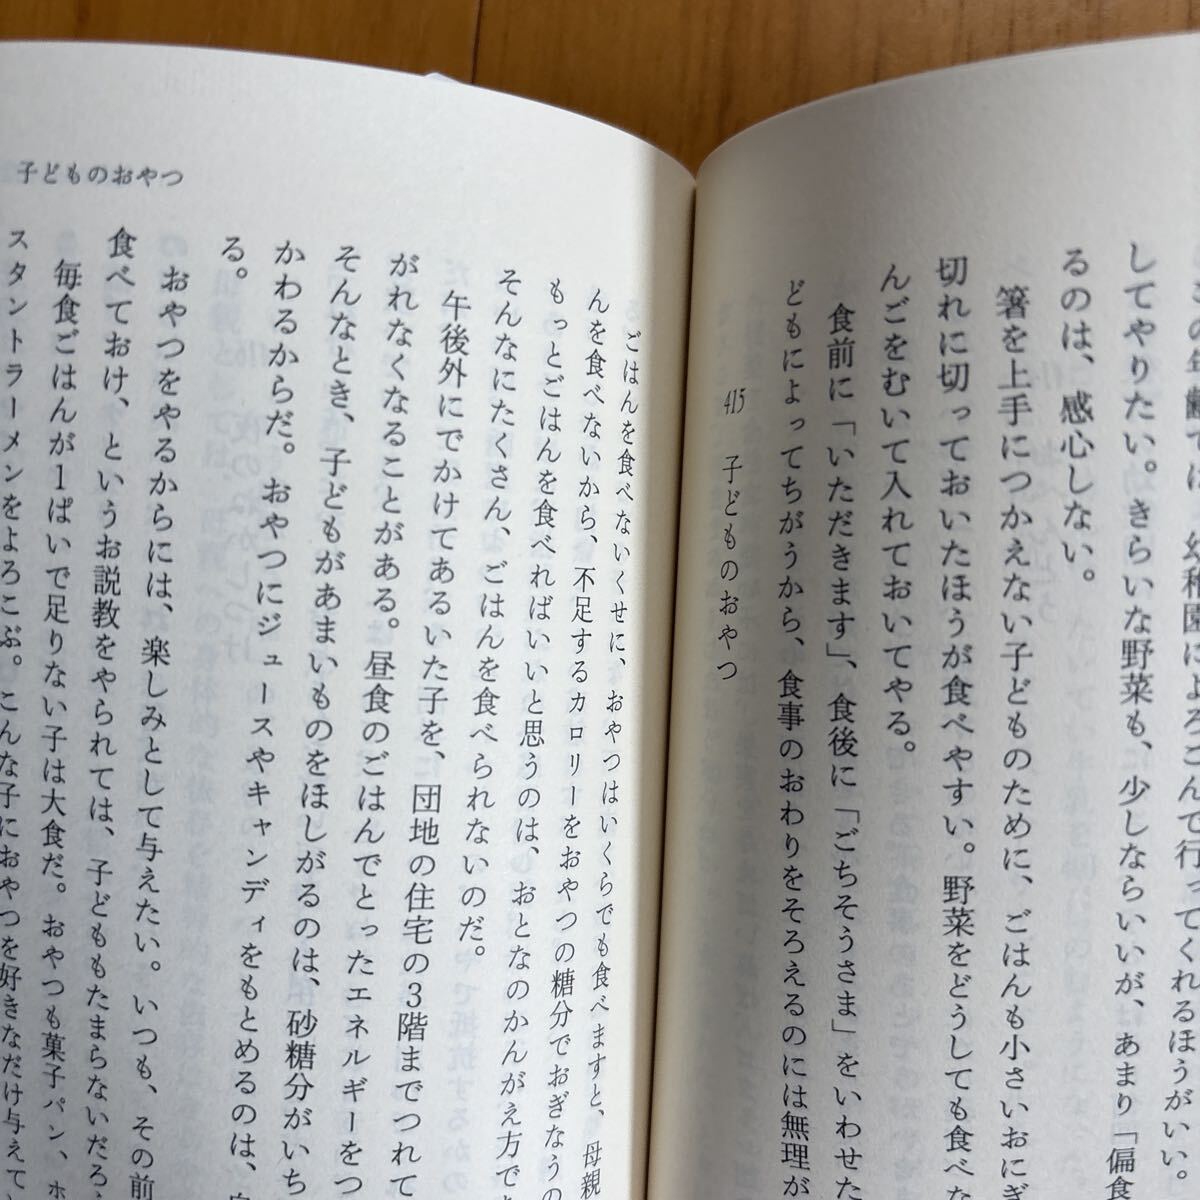 の年齢では、幼稚園によろこんで行ってくれるほうがいい。
してやりたい。きらいな野菜も、少しならいいが、あまり「偏食
るのは、感心しない。
箸を上手につかえない子どものために、ごはんも小さいおにぎ
切れに切っておいたほうが食べやすい。野菜をどうしても食べな
んごをむいて入れておいてやる。
食前に「いただきます」、食後に「ごちそうさま」をいわせた
どもによってちがうから、食事のおわりをそろえるのには無理が
415 子どものおやつ
子どものおやつ
ごはんを食べないくせに、おやつはいくらでも食べますと、母親
んを食べないから、不足するカロリーをおやつの糖分でおぎなうの
もっとごはんを食べればいいと思うのは、おとなのかんがえ方で
そんなにたくさん、ごはんを食べられないのだ。
午後外にでかけてあるいた子を、団地の住宅の3階までつれて
がれなくなることがある。昼食のごはんでとったエネルギーをつ
そんなとき、子どもがあまいものをほしがるのは、砂糖分がいち
かわるからだ。おやつにジュースやキャンディをもとめるのは、
る。
おやつをやるからには、楽しみとして与えたい。いつも、その前
食べておけ、というお説教をやられては、子どももたまらないだろ
毎食ごはんが1ぱいで足りない子は大食だ。おやつも菓子パン、ホ
スタントラーメンをよろこぶ。こんな子におやつを好きなだけ与えて